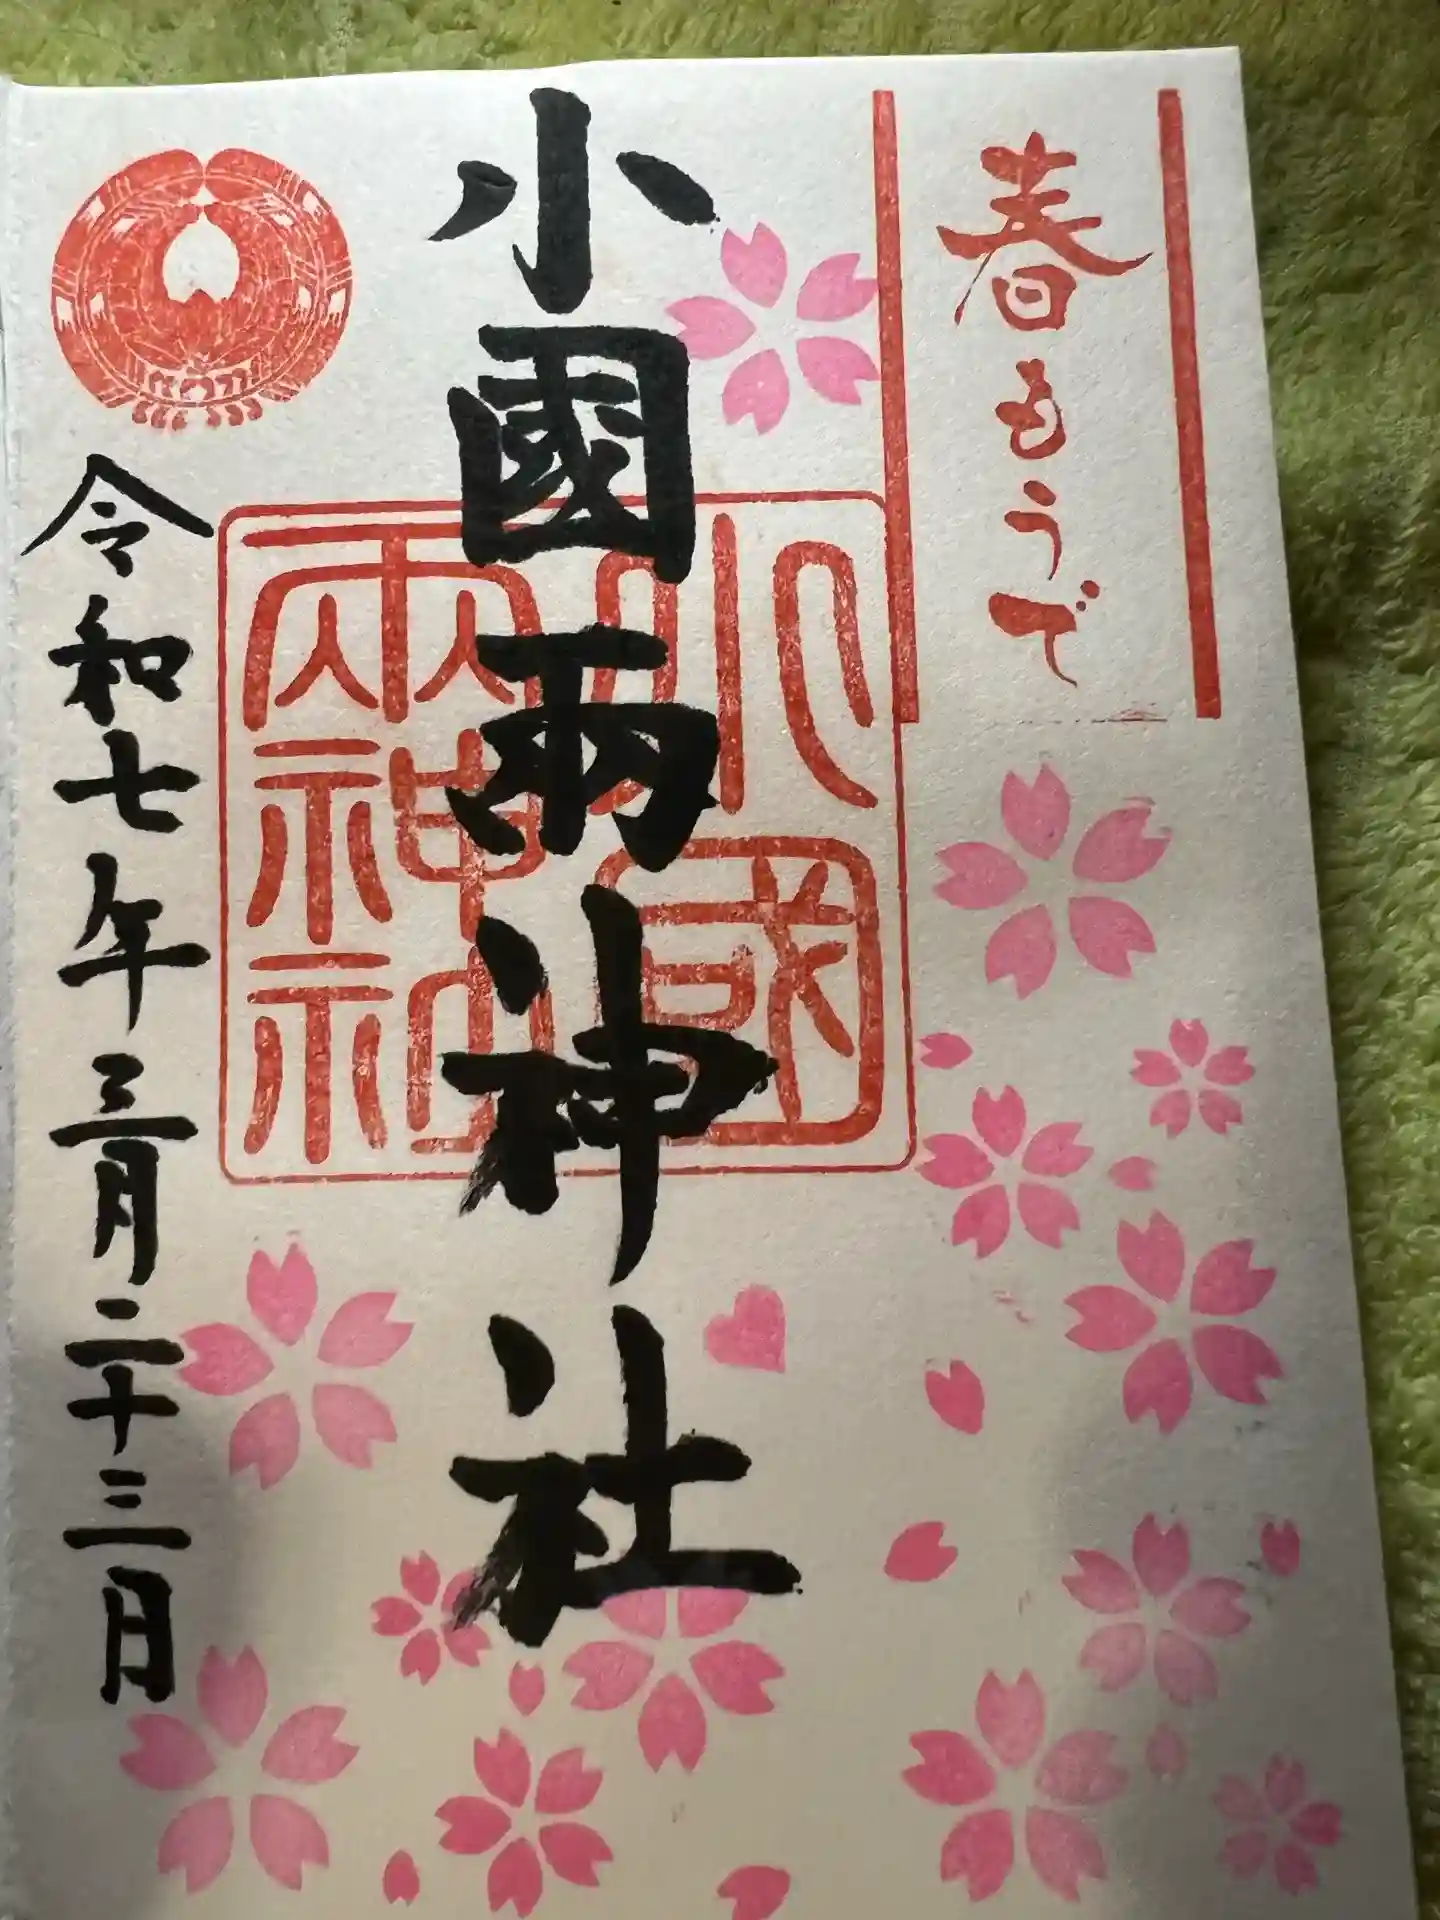 春もうで
小國両神社
小國
両神社
令和七年三月二十三日